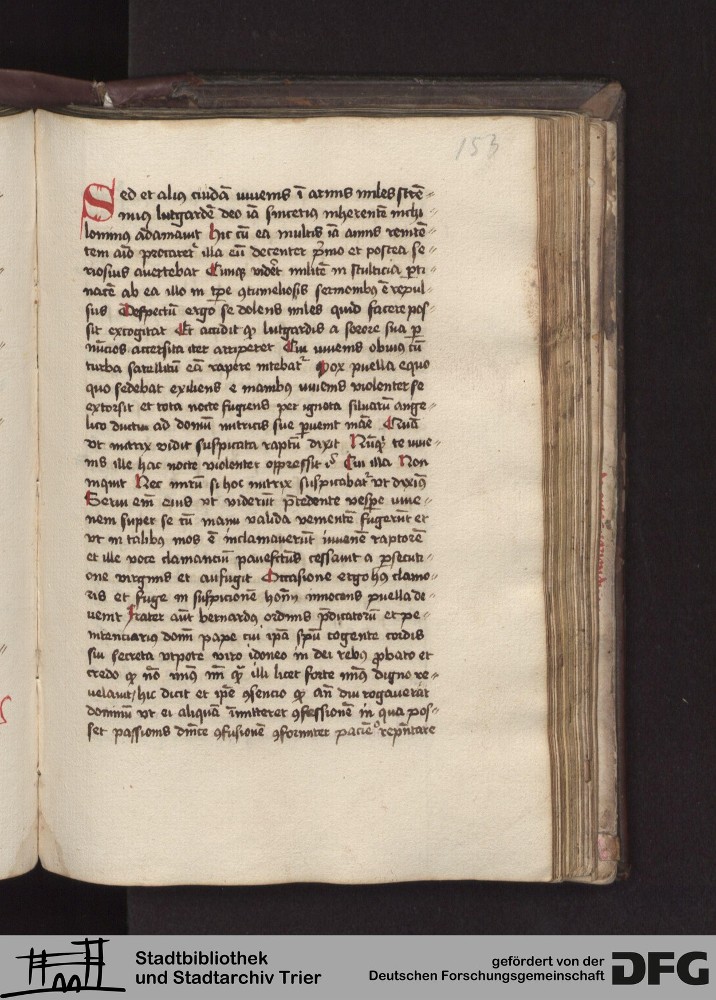 153
Sed et aliꝰ cuidā iuuenis ī armis miles strē⸗
nuiꝰ lutgardē deo iā sinceriꝰ inherentē nichi
lominꝰ adamauit Hic cū ea multis iā annis remitē⸗
tem aīo procaretᷣ illa eū decenter pͥmo et postea se⸗
riosius auertebat Cumqꝫ videret militē in stulticia ꝑti⸗
nacē ab ea illo in tꝑe ꝯtumeliosis sermonibꝰ ē repul⸗
sus Despectū ergo se dolens miles quid facere pos⸗
sit excogitat Et accidit qꝫ lutgardis a sorore sua ꝑ
nūcios accersita iter arriperet Cui iuuenis obuiꝰ cū
turba satellitū eā rapere nitebatᷣ Mox puella equo
quo sedebat exiliens e manibꝰ iuuenis violenter se
extorsit et tota nocte fugiens per ignota siluarū ange⸗
lico ductu ad domū nutricis sue ꝑuenit mane Quā
vt nutrix vidit suspicata raptū dixit Nūqꝫ te iuue⸗
nis ille hac nocte violenter oppressit Cui illa Non
inquit Nec mirū si hoc nutrix suspicabatᷣ vt diximꝰ
Serui eni eius vt viderūt p̄cedente vespe iuue⸗
nem super se cū manu valida vementē fugerūt et
vt in talibꝰ mos ē inclamauerūt iuuenē raptorē
et ille voce clamanciū pauefctūs cessauit a ꝑsecuti⸗
one virginis et aufugit Occasione ergo hꝰ clamo⸗
ris et fuge in suspicionē honī innocens puella de⸗
uenit Frater aūt bernardꝰ ordinis p̄dicatorū et pe⸗
nitenciariꝰ domni pape cui ipā spū cogente cordis
sui secreta vtpote viro idoneo in dei rebꝰ ꝓbato et
credo qꝫ nō minꝰ mī qꝫ illi licet forte minꝰ digno re⸗
uelauit hic dicit et ip̄e ꝯsencio qꝫ an̄ diu rogauerat
dominū vt ei aliquā īmitteret ꝯfessionē in qua pos⸗
set passionis dn̄ice ꝯfusionē ꝯformiter pacien repn̄tare
Stadtbibliothek
und Stadtarchiv Trier
gefördert von der
Deutschen Forschungsgemeinschaft
DFG